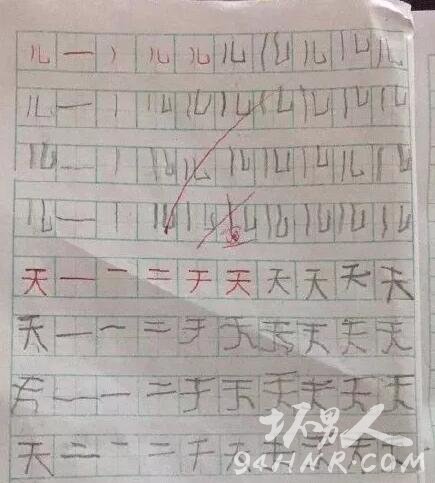 儿 一 丿 儿 儿 儿 儿 儿 儿 儿
儿 一 丿 儿 儿 儿 儿 儿 儿 儿
儿 一 丿 儿 儿 儿 儿 儿 儿 儿
儿 一 丿 儿 儿 儿 儿 儿 儿
天 一 一 二 于 天 天 天 天 天
天 一 一 二 于 天 天 天 天 天
天 一 一 二 于 天 天 天 天 天
天 二 一 二 天
坏男人
94HNR.COM